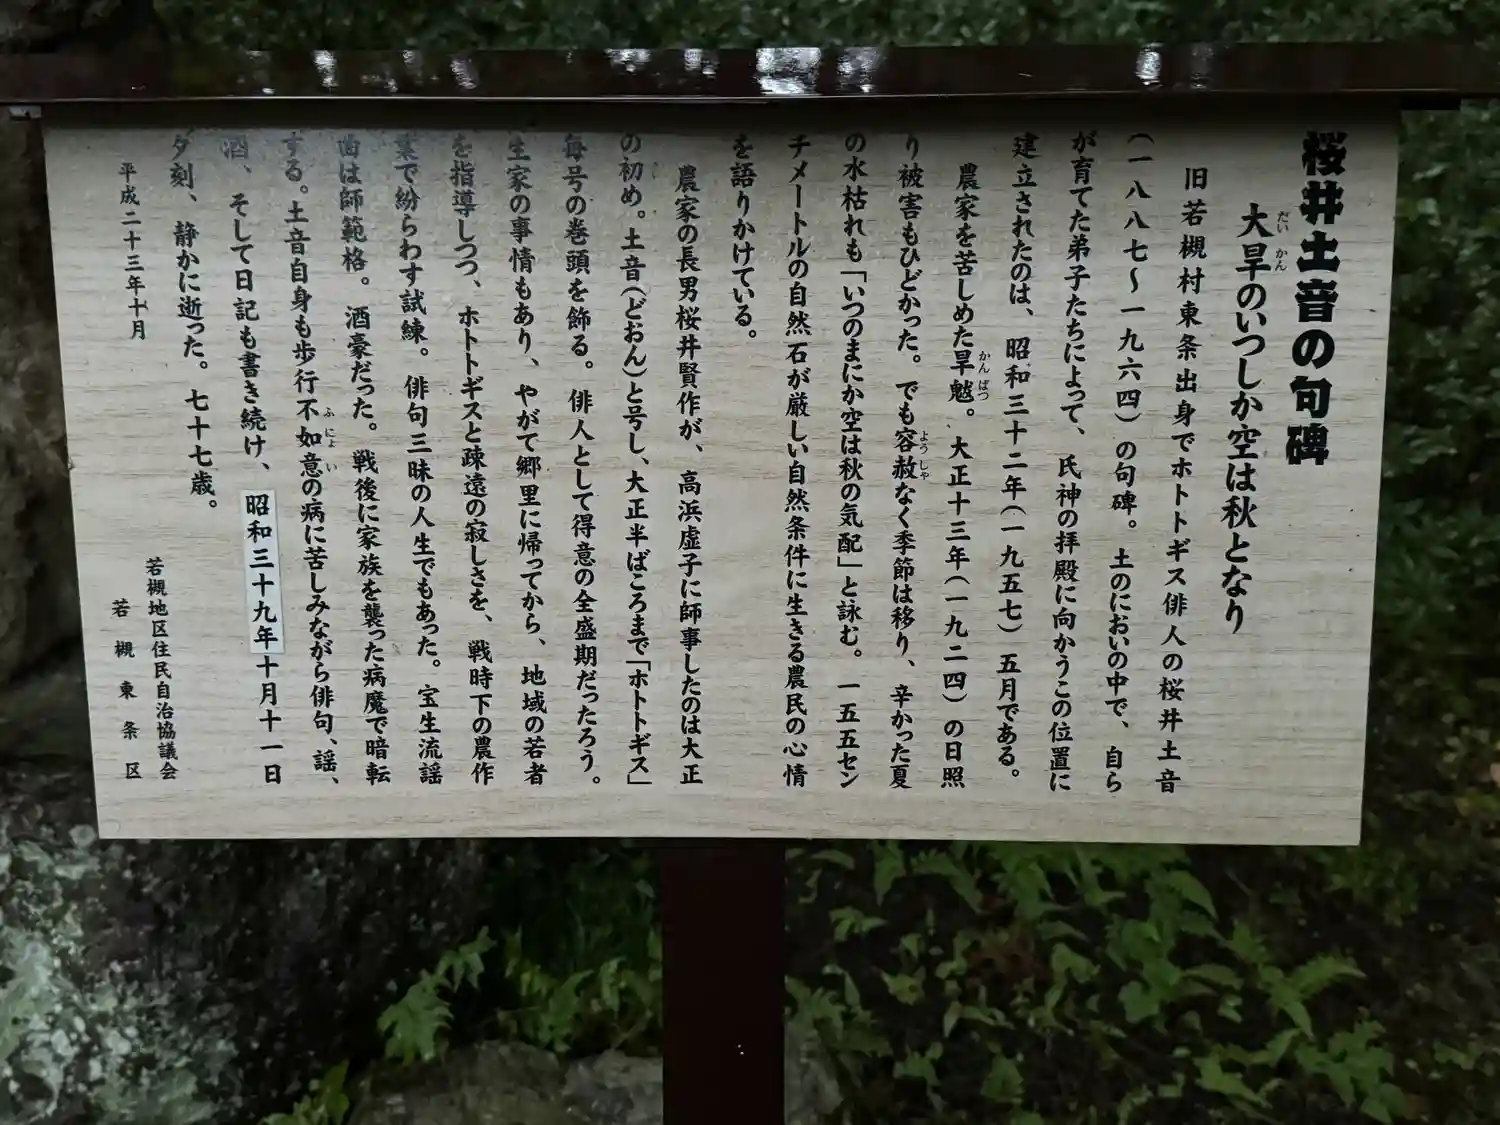 桜井土音の句碑
大旱のいつしか空は秋となり
だいかん
旧若槻村東条出身でホトトギス俳人の桜井土音
(一八八七〜一九六四)の句碑。土のにおいの中で、自ら
が育てた弟子たちによって、氏神の拝殿に向かうこの位置に
建立されたのは、昭和三十二年(一九五七)五月である。
農家を苦しめた旱魃。大正十三年(一九二四)の日照
かんばつ
り被害もひどかった。でも容赦なく季節は移り、辛かった夏
ようしゃ
の水枯れも「いつのまにか空は秋の気配」と詠む。一五五セン
チメートルの自然石が厳しい自然条件に生きる農民の心情
を語りかけている。
農家の長男桜井賢作が、高浜虚子に師事したのは大正
の初め。土音(どおん)と号し、大正半ばころまで「ホトトギス」
毎号の巻頭を飾る。俳人として得意の全盛期だったろう。
生家の事情もあり、やがて郷里に帰ってから、地域の若者
を指導しつつ、ホトトギスと疎遠の寂しさを、戦時下の農作
業で紛らわす試練。俳句三昧の人生でもあった。宝生流謡
曲は師範格。酒豪だった。戦後に家族を襲った病魔で暗転
する。土音自身も歩行不如意の病に苦しみながら俳句、謡、
ふにょい
酒、そして日記も書き続け、昭和三十九年十月十一日
夕刻、静かに逝った。七十七歳。
平成二十三年十月
若槻地区住民自治協議会
若槻東条区